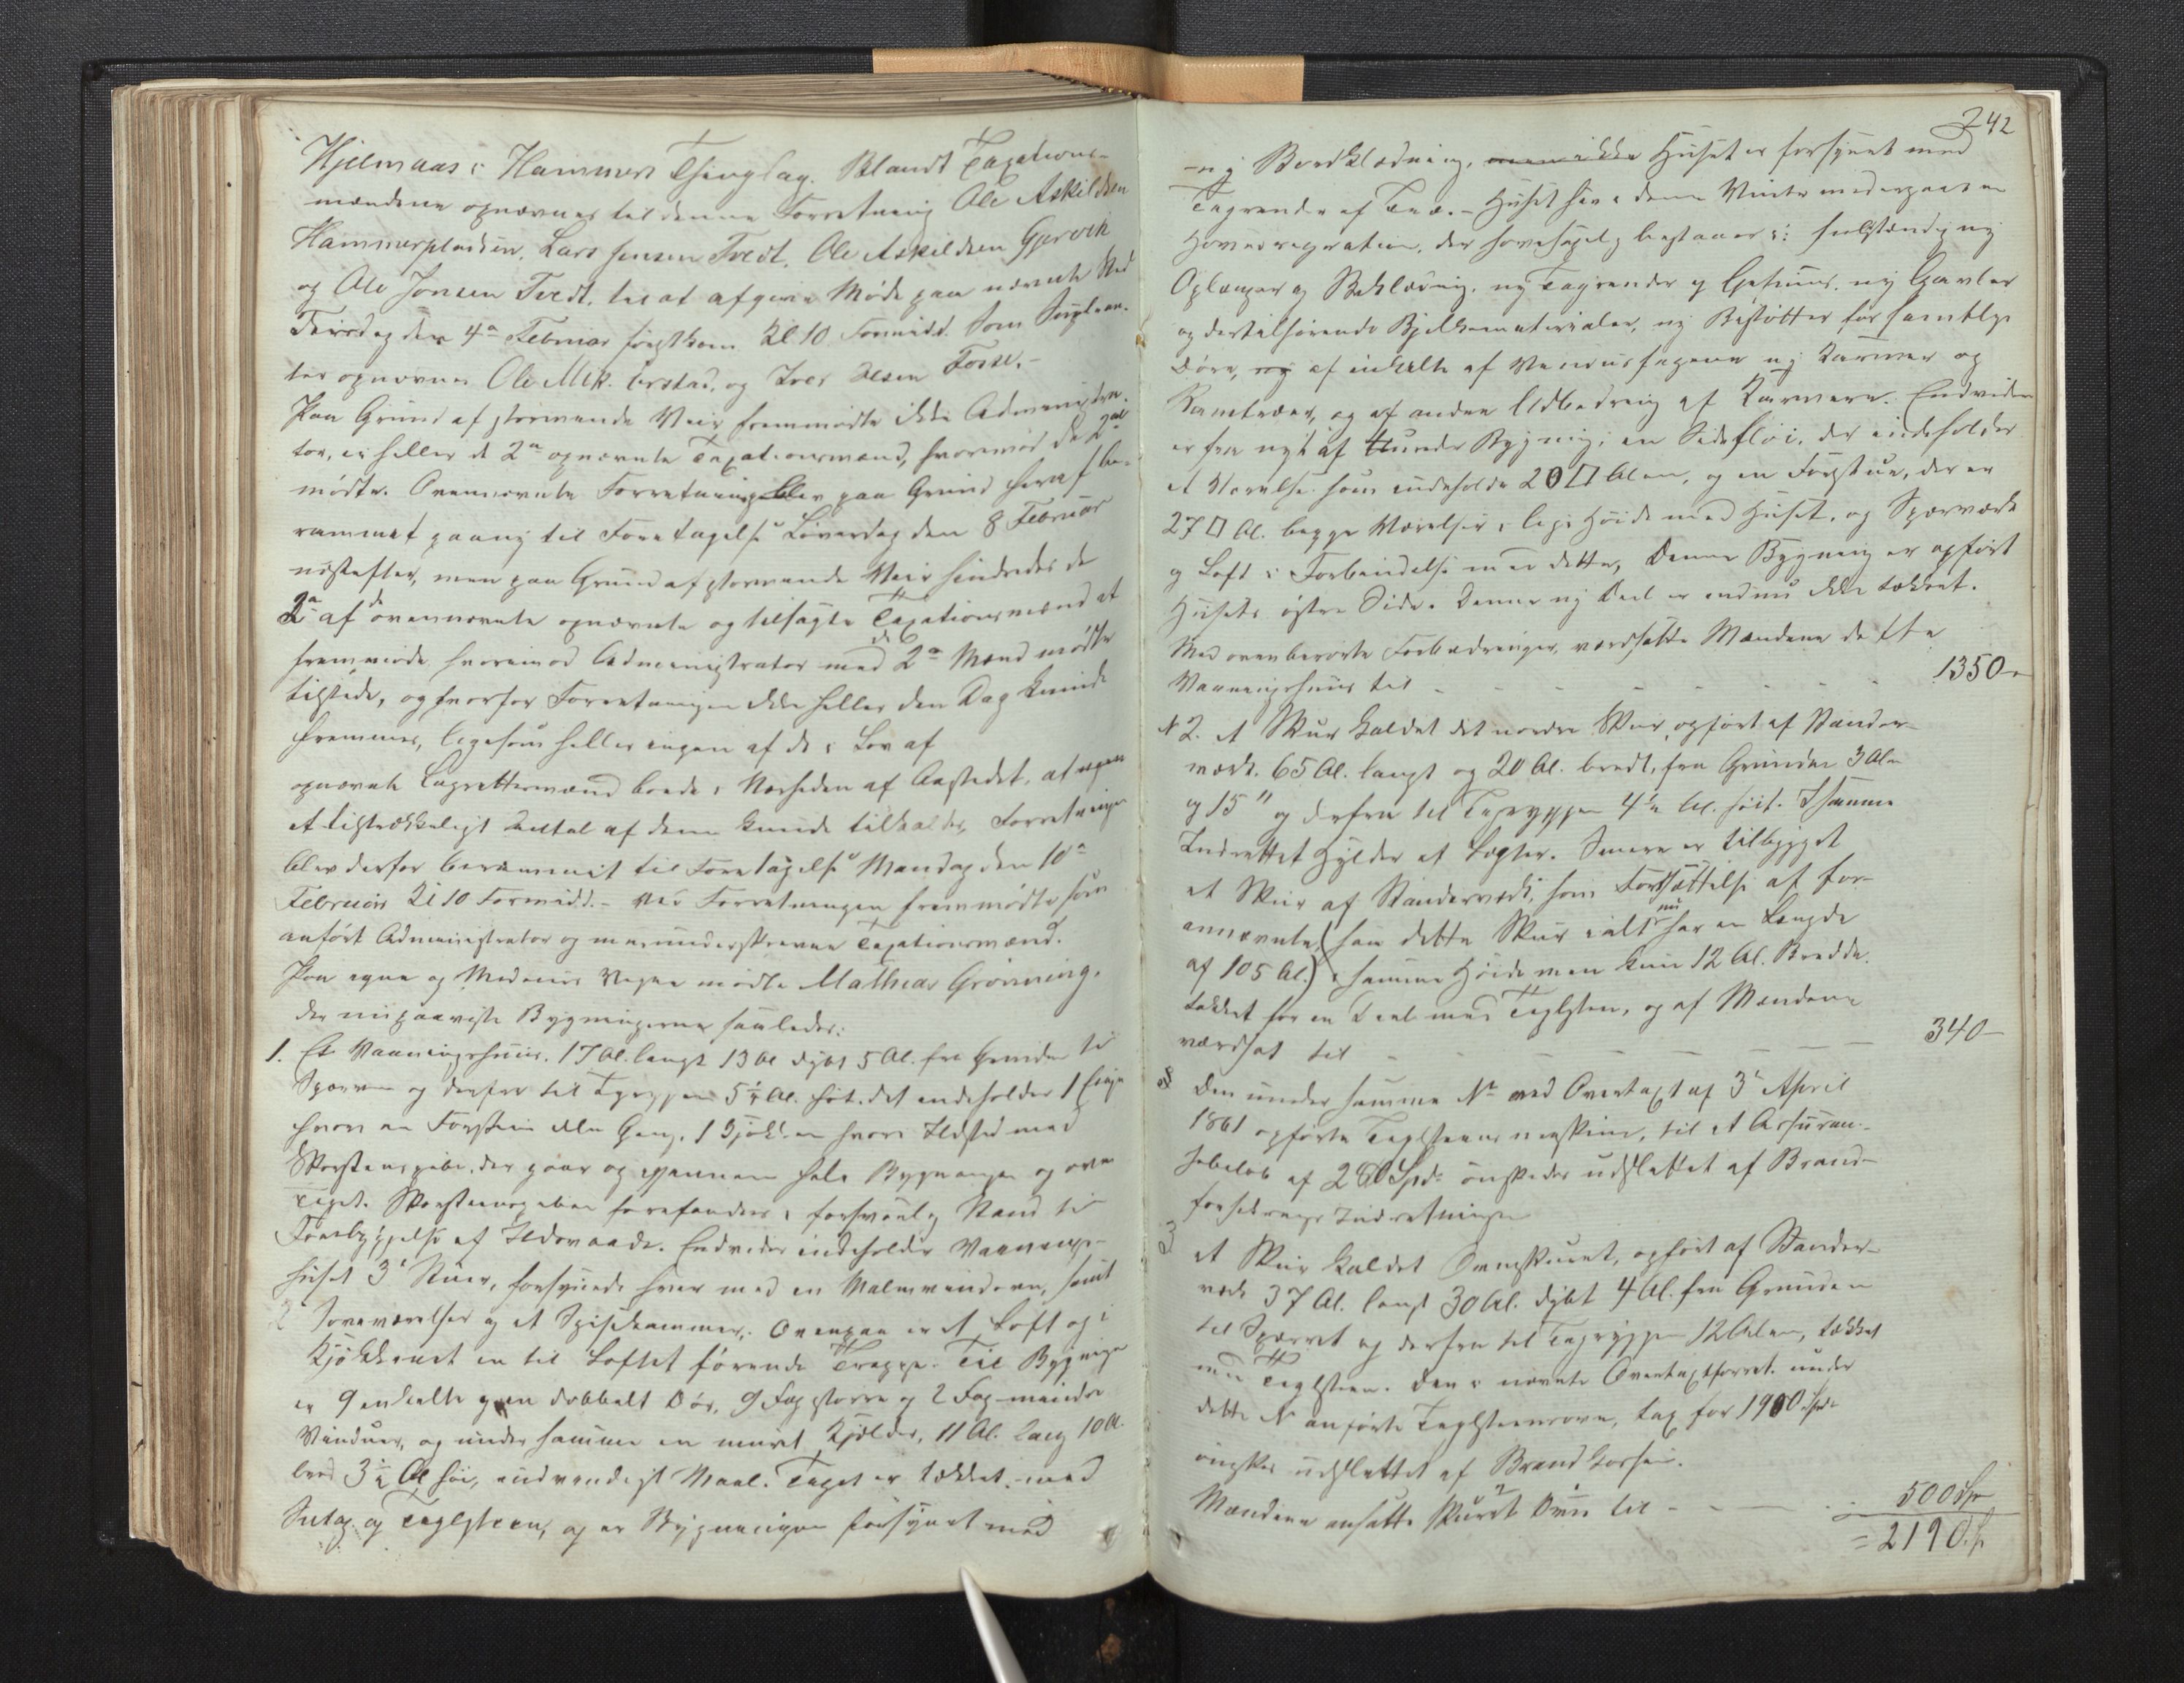 Hjelmaas i Hammers Thinglag. Blandt Taxations-
mændene opnævnes til denne Forretning Ole Askildsen
Hammerpladsen, Lars Jensen Tvedt, Ole Askildsen Gjervik
og Ole Jonsen Tvedt, til at afgive Møde paa nævnte Sted
Tirsdag den 4de Februar førstkom. Kl 10 Formidd. Som Supplean-
ter opnævnes Ole Mik. Erstad, og Iver Olsen Fosse.-
Paa Grund af stormende Veir fremmødte ikke Administra-
tor, ei heller de 2de opnævnte Taxationsmænd, hvorimod de 2de
mødte. Ovennævnte Forretning blev paa Grund heraf be-
rammet paany til Foretagelse Løverdag den 8 Februar
næstefter, men paa Grund af stormende Veir hindredes de
2de af de ovennævnte opnævnte og tilsagte Taxationsmænd at
fremmøde hvorimod Administrator med de 2de Mænd mødte
tilstede, og hvorfor Forretningen ikke heller den Dag kunde
fremmes, ligesom heller ingen af de i Lov af
opnævnte Lagrettesmænd boede i Nærheden af Aastedet, at
et tilstrækkeligt Antal af dem kunde tilkaldes. Forretningen
blev derfor berammet til Foretagelse Mandag den 10de
Februar Kl 10 Formidd. - Ved Forretningen fremmødte som
anført Administrator og medunderskrevne Taxationsmænd.
Paa egne og Medeiers Vegne mødte Mathias Grønning,
der nu paaviste Bygningerne saaledes:
1. Et Vaaningshuus, 17 Al. langt 13 Al dybt 5 Al. fra Grunden til
Sperren og derfra til Tagryggen 5¼ Al. høit. det indeholder 1 Etage
hvori en Forstue eller Gang, 1 Kjøkken hvori Ildsted med
Skorstenspibe, der gaar op igjennem hele Bygningen og over
Taget. Skorstenspiben forefandtes i forsvarlig Stand til
Forebyggelse af Ildsvaade. Endvidere indeholder Vaanings-
huset 3 Stuer, forsynede hver med en Malmvindovn, samt
2 Soveværelser og et Spisekammer. Ovenpaa er et Loft og i
Kjøkkenet en til Loftet førende Trappe. Til Bygningen
er 9 enkelte og en dobbelt Dør, 9 Fag større og 2 Fag mindre
Vinduer, og under samme en muret Kjelder, 11 Al. lang 10 Al.
bred 3½ Al høi, indvendigt Maal. Taget er tækket med
Sutag og Teglsteen, og er Bygningen forsynet med
242
-ny Bordklædning, men ikke Huset er forsynet med
Tagrender af Træ. - Huset har i denne Vinter undergaaet en
Hovedreparation, der hovedsagelig bestaaer i: fuldstændig ny
Oplænger og Beklædning, ny Tagrender og Gesims, ny Gavler
og dertilhørende Bjelkematerialer, ny Beslætter for samtlige
Døre, ny af enkelte af Vinduesfagene ny Karmer og
og af andre Udbedring af Karmene. Endvidere
er fra nyt af tilbygget en Sidefløi, der indeholder
et Værelse som indeholder 20 □ Alen, og en Forstue, der er
27 □ Al. begge Værelser i lige Høide med Huset, og Sperværk
og Loft i Forbindelse med dette, Denne Bygning er opført
Husets østre Side. Denne ny Deel er endnu ikke tækket.
Med ovenberørte Forbedringer, værdsatte Mændene dette
Vaaningshuus til - - - - - - 1350-
N 2. et Skur kaldet det nordre Skur, opført af Stander-
værk. 65 Al. langt og 20 Al. bredt, fra Grunden 3 Alen
og 15" og derfra til Tagryggen 4½ Al. høit. I samme
Indrettet Hylder af Lægter. Senere er tilbygget
et Skur af Standerværk, som Fortsættelse af for-
annævnte, (saa dette Skur ialt nu har en Længde
af 105 Al.) i samme Høide men kun 12 Al. Bredde.
tækket for en Deel med Teglsteen, og af Mændene
værdsat til - - - - - 340-
Den under samme No ved Overtaxt af 3 April
1861 opførte Teglsteensmaskine, til et Assuran-
cebeløb af 260 Spd. ønskedes udslettet af Brand-
forsikringsIndretningen
3 et Skur kaldet Ovnskuret, opført af Stander-
værk 37 Al. langt 30 Al. dybt 4 Al. fra Grunden
til Sperret og derfra til Tagryggen 12 Alen, tækket
med Teglsteen. Den i nævnte Overtaxtforret. under
dette N anførte Teglsteensovn, tax for 1900 Spd.
ønskes udslettet af Brandkassen.
Mændene ansatte Skuret Ovn til - - - 500 Sp
= 2190 Sp.